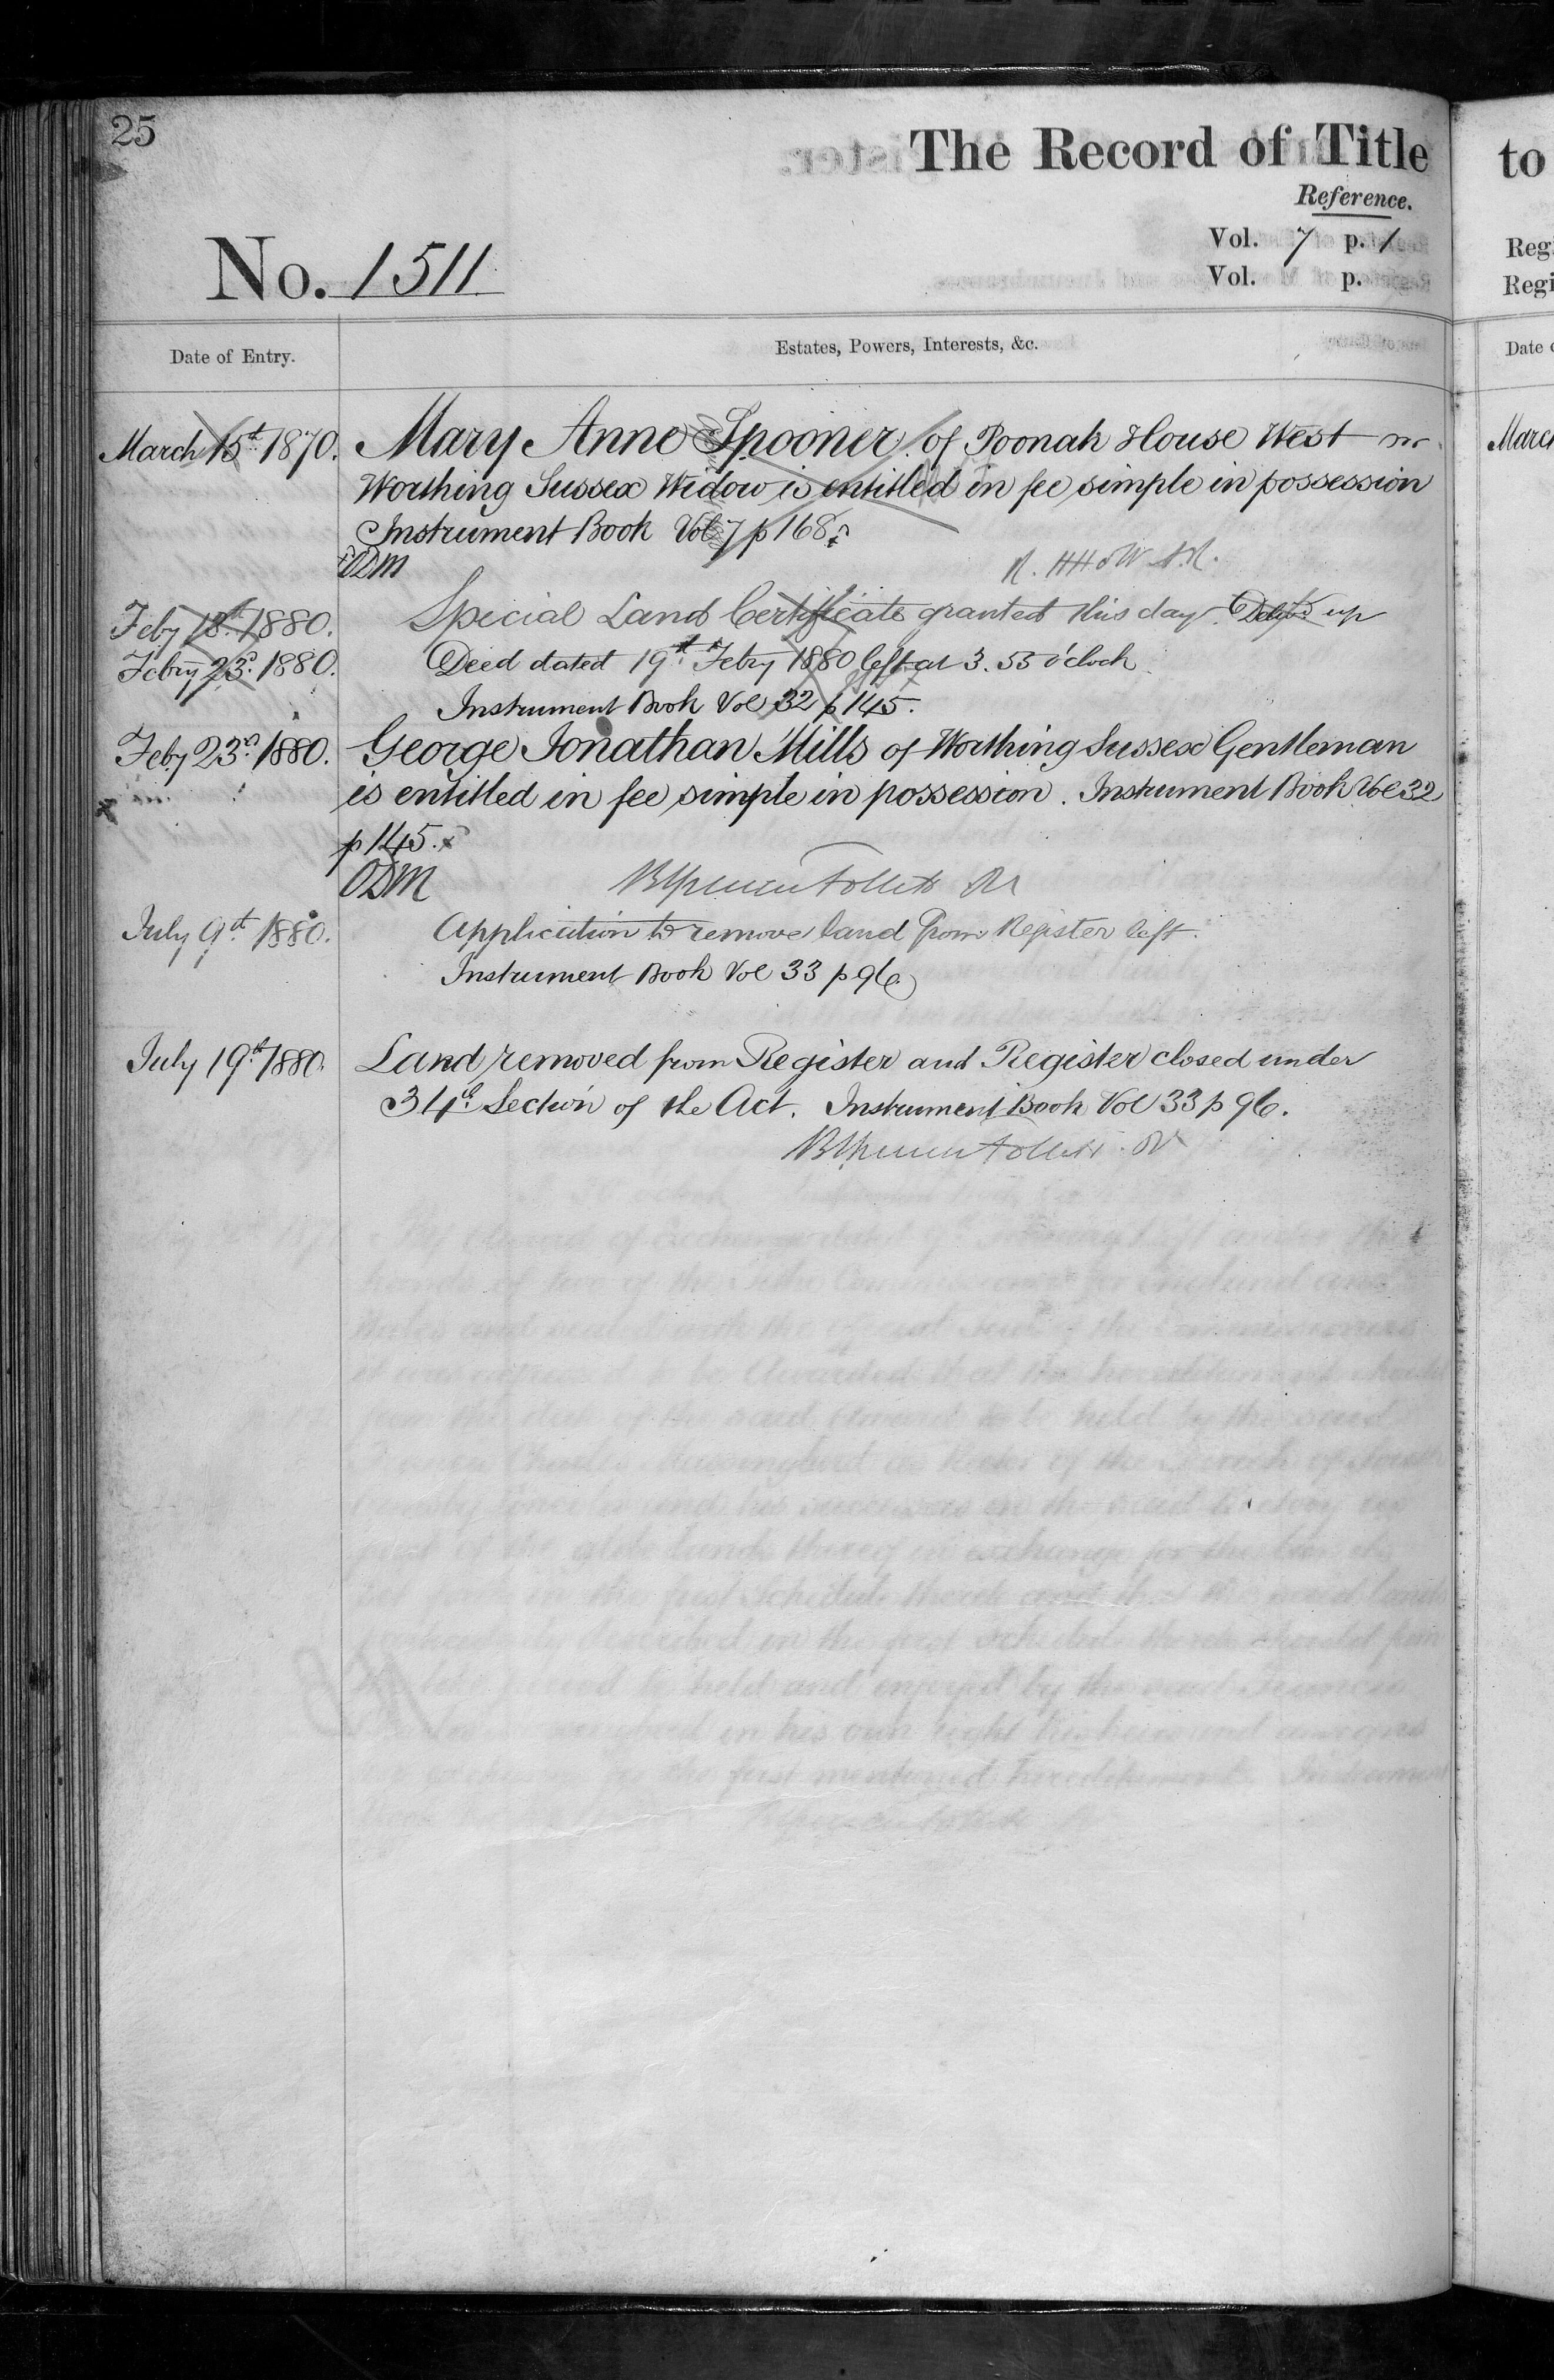 25
The Record of Title
Reference.
Vol. 7 p. 1
Vol. p.
No. 1511
Date of Entry.
Estates, Powers, Interests, &c.
March 15th 1870. Mary Anne Spooner of Poonah House West
Worthing Sussex Widow is entitled in fee simple in possession
Instrument Book Vol 7 p 168
ODM
Feby 18th 1880. Special Land Certificate granted this day. Delvd up
Febry 23rd 1880. Deed dated 19th Febry 1880 left at 3.53 o'clock
Instrument Book Vol 32 p 145.
Feby 23rd 1880. George Jonathan Mills of Worthing Sussex Gentleman
is entitled in fee simple in possession. Instrument Book Vol 32
p 145.
ODM
July 9th 1880. Application to remove land from Register left.
Instrument Book Vol 33 p 96
July 19th 1880. Land removed from Register and Register closed under
34th Section of the Act. Instrument Book Vol 33 p 96.
to
Regi
Date
March